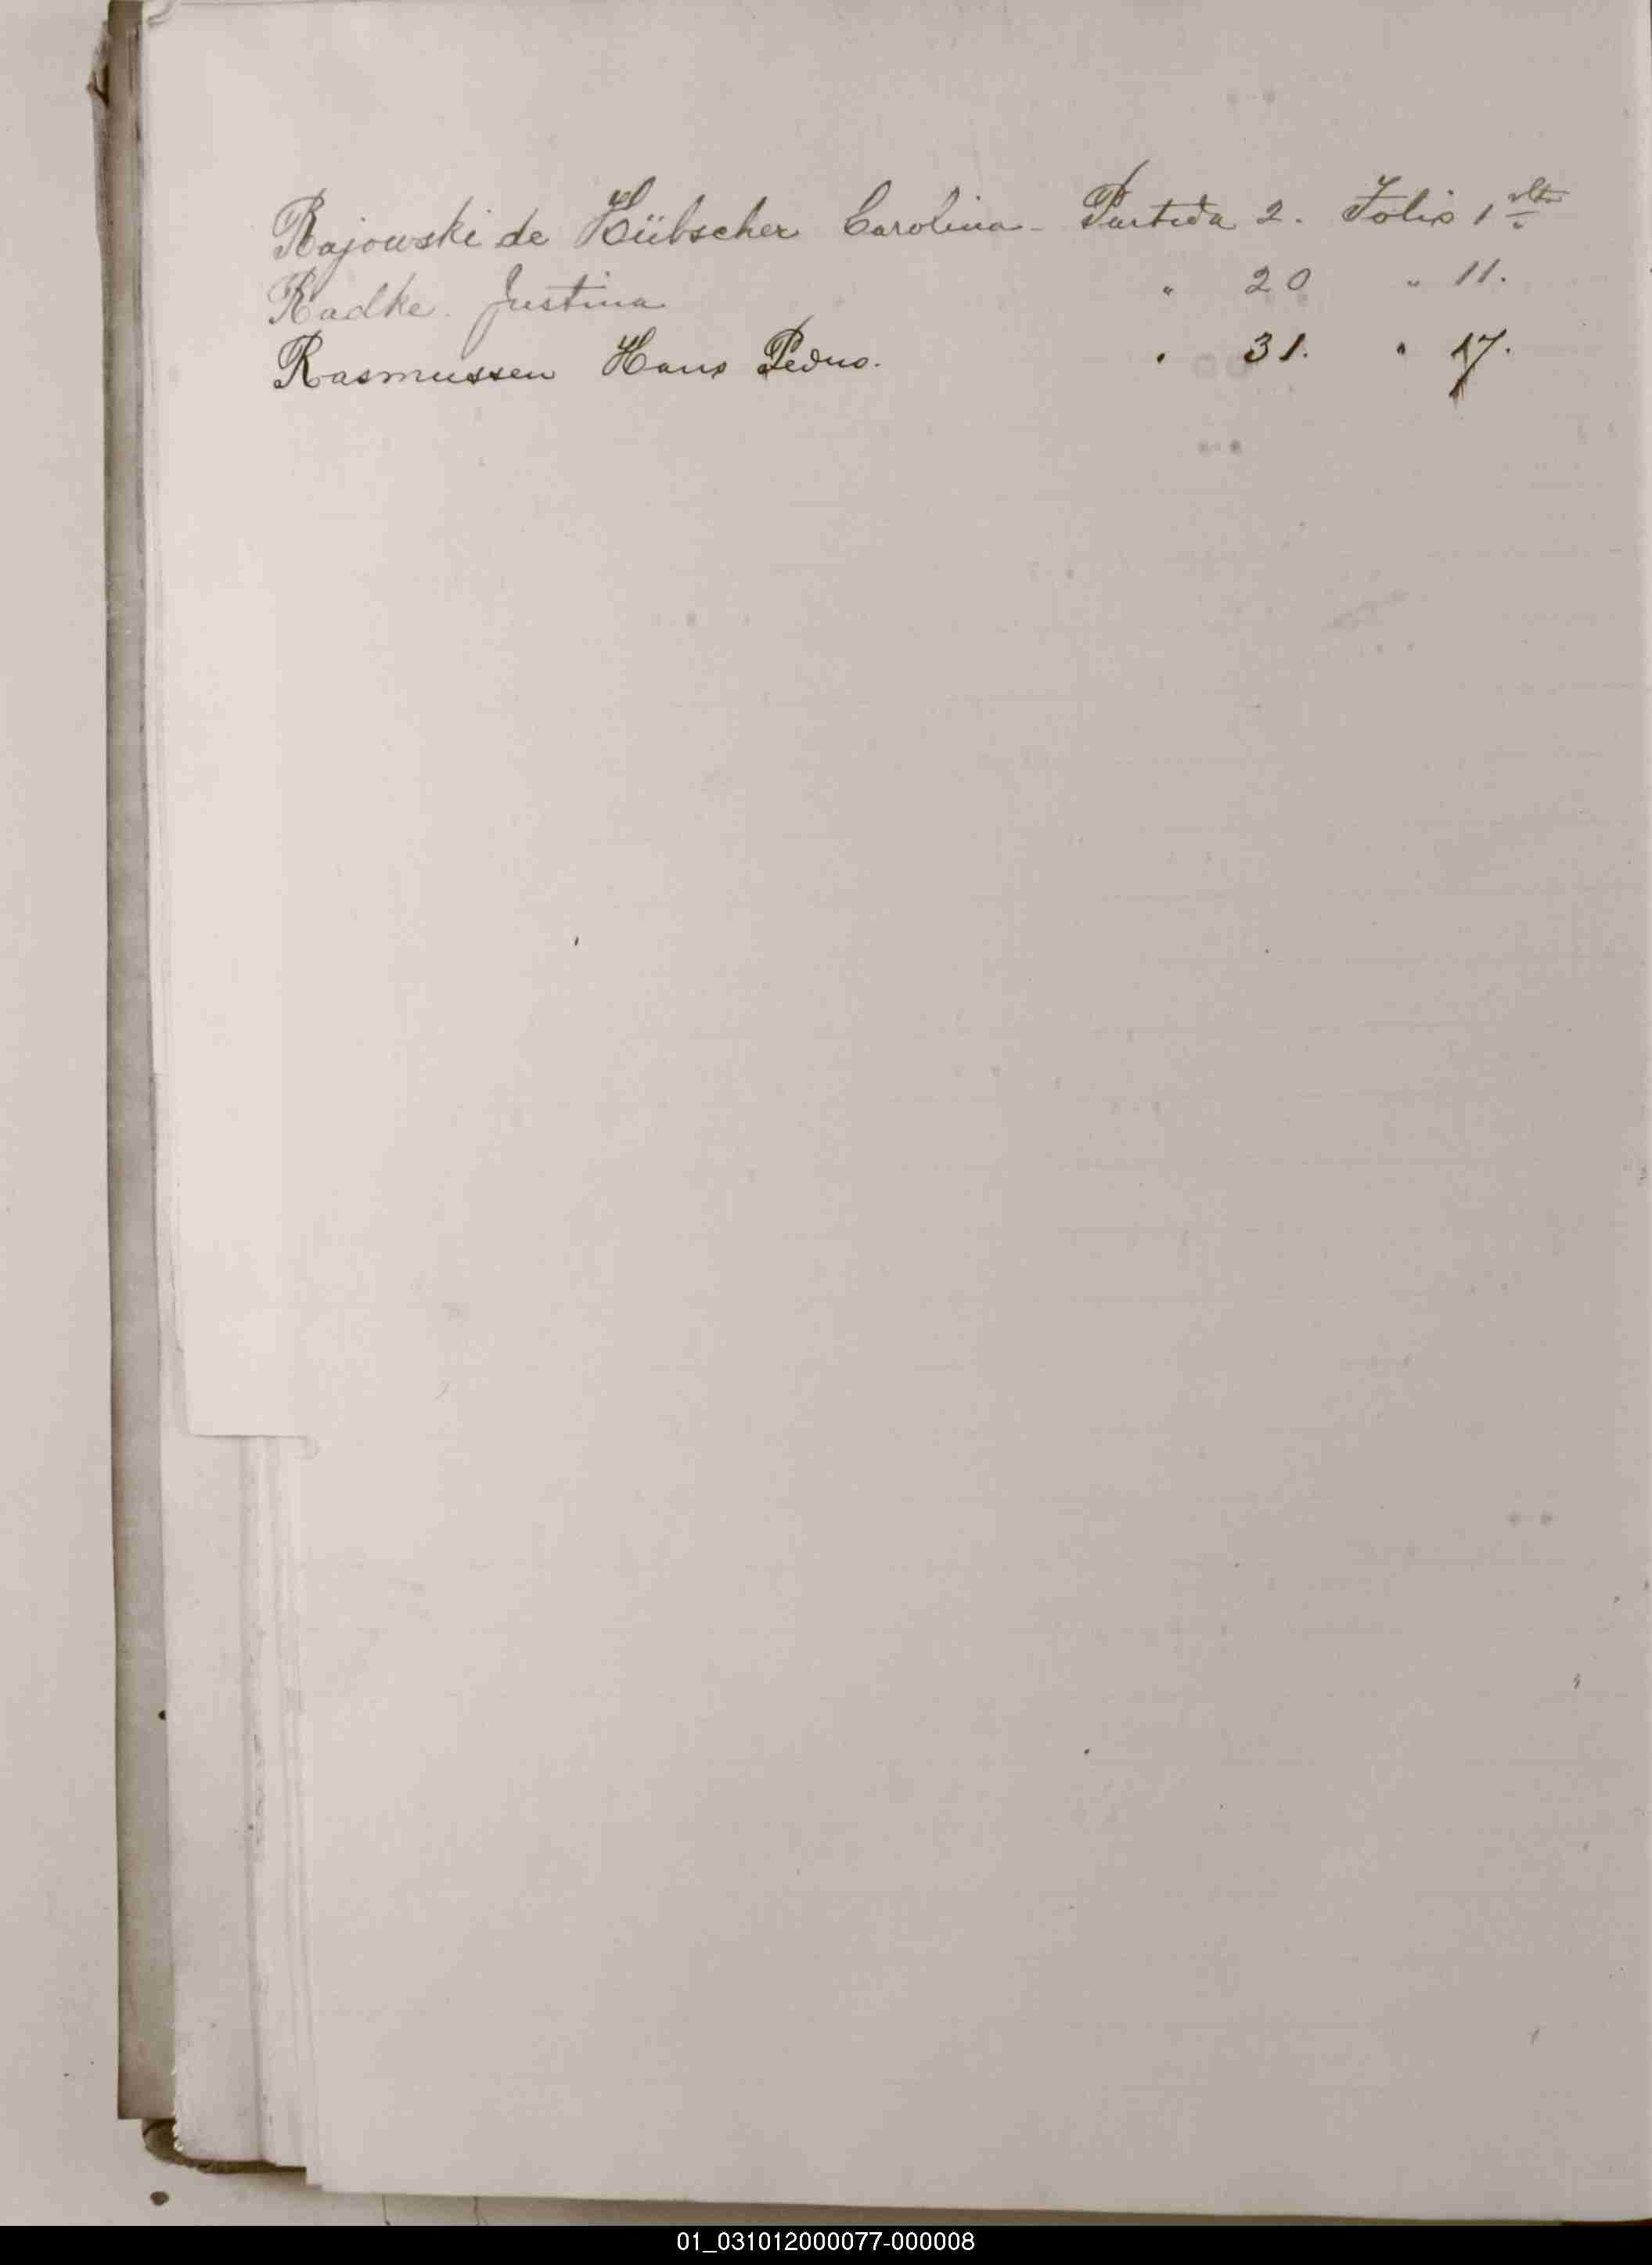 Rajowski de Hübscher Carolina - Partida 2. Folio 1 vlto
Radke. Justina " 20 " 11.
Rasmussen Hans Pedro. " 31. " 17.
01_031012000077-000008